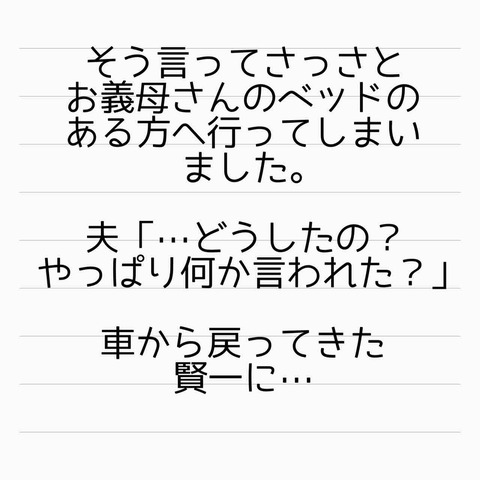 そう言ってさっさと
お義母さんのベッドの
ある方へ行ってしまい
ました。
夫「…どうしたの？
やっぱり何か言われた？」
車から戻ってきた
賢一に…